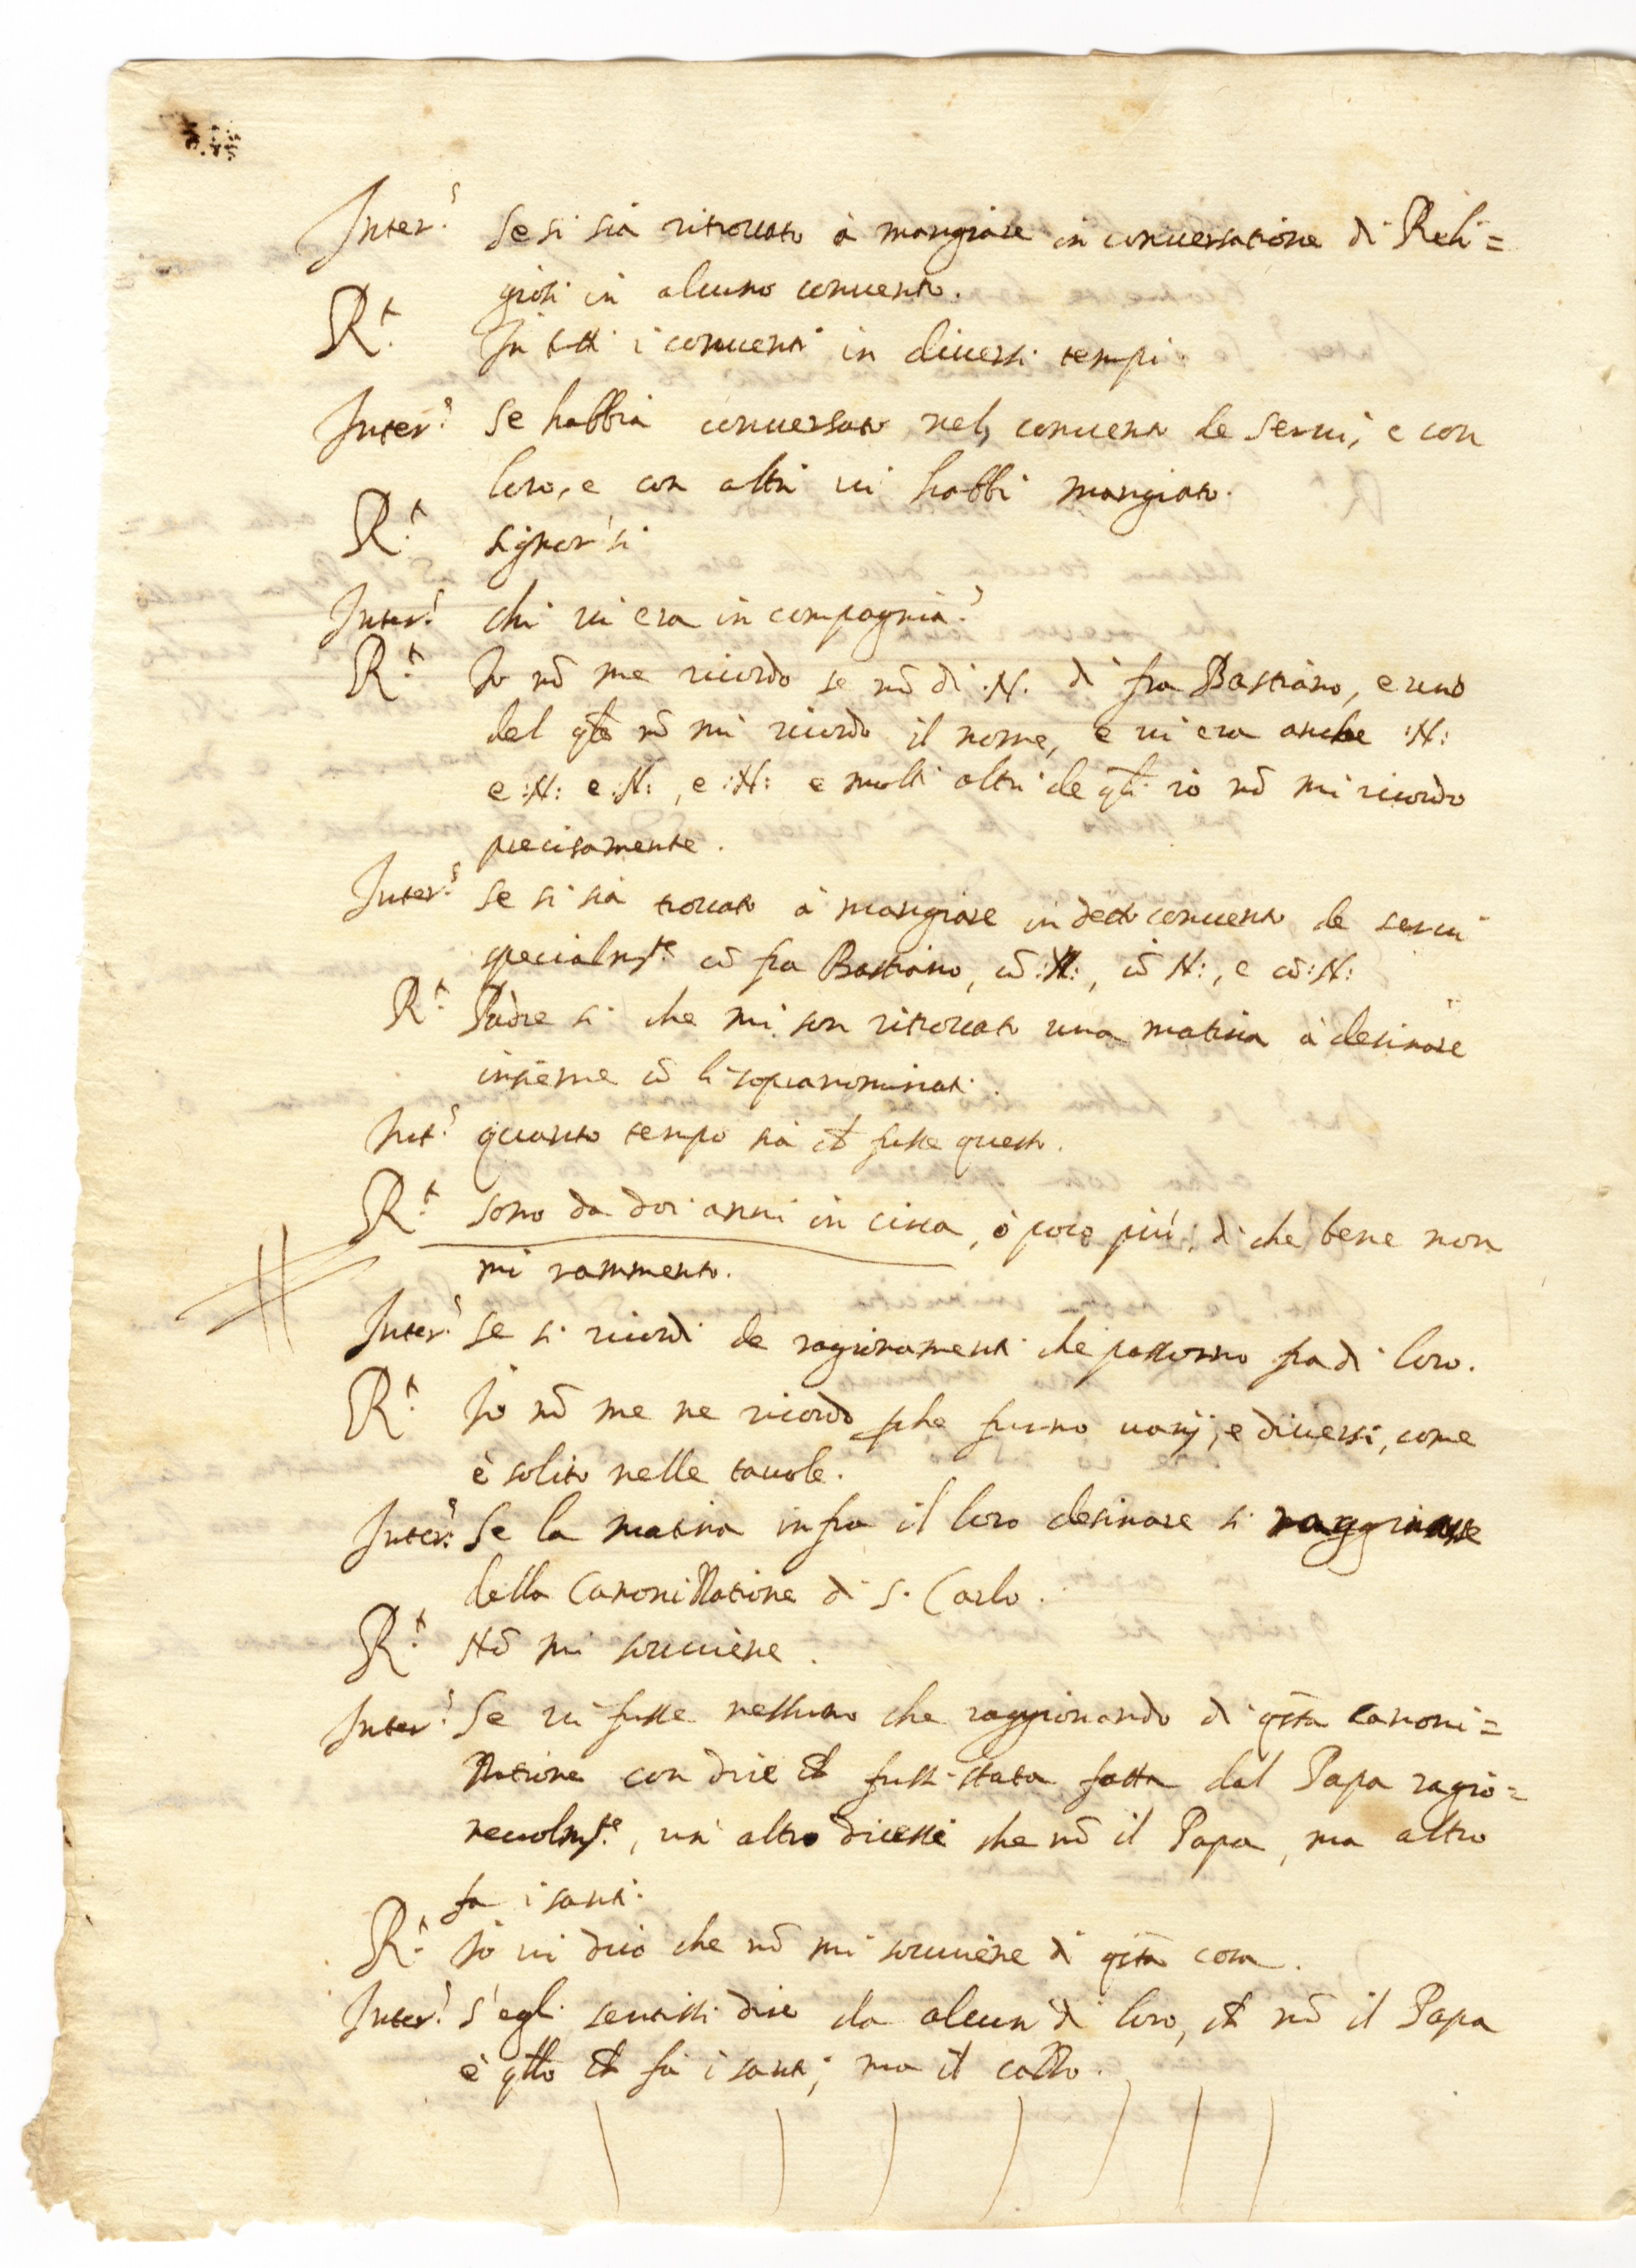 Inter.s Se si sia ritrouato à mangiare in conuersatione di Reli=
giosi in alcuno conuento.
R.t In tutti i conuenti in diuersi tempi.
Inter.s Se habbia conuersato nel conuento de serui, e con
loro, e con altri ui habbi mangiato.
R.t signor si
Inter.s chi ui era in compagnia?
R.t Io nō me ricordo se nō di .N. di fra Bastiano, e uno
del qle nō mi ricordo il nome, e ui era anche :N:
e :N: e :N:, e :N: e molti altri de qli io nō mi ricordo
precisamente.
Inter.s se si sia trouato à mangiare in detto conuento de serui
specialmte. cō fra Bastiano, cō :N:, cō N:, e cō :N:
R.t Padre si che mi son ritrouato una matina à desinare
insieme cō li sopranominati.
Int.s quanto tempo sia ch fusse questo.
R.t sono da doi anni in circa, ò poco più, di che bene non
mi rammento.
Inter.s se si ricordi de ragionamenti che passorno fra di loro.
R.t Io nō me ne ricordo pche furno uarij, e diuersi, come
è solito nelle tauole.
Inter.s Se la matina infra il loro desinare si raggionasse
della Canonizzatione di S. Carlo.
R.t Nō mi souuiene.
Inter.s Se ui fusse nessuno che raggionando di qsta canoni=
zzatione con dire ch fussi stata fatta dal Papa ragio=
neuolmte., un altro dicessi che nō il Papa, ma altro
fa i santi.
R.t Io ui dico che nō mi souuiene di qsta cosa.
Inter.s s'egli sentissi dire da alcun di loro, ch nō il Papa
è qllo ch fà i santi; ma il cazzo.